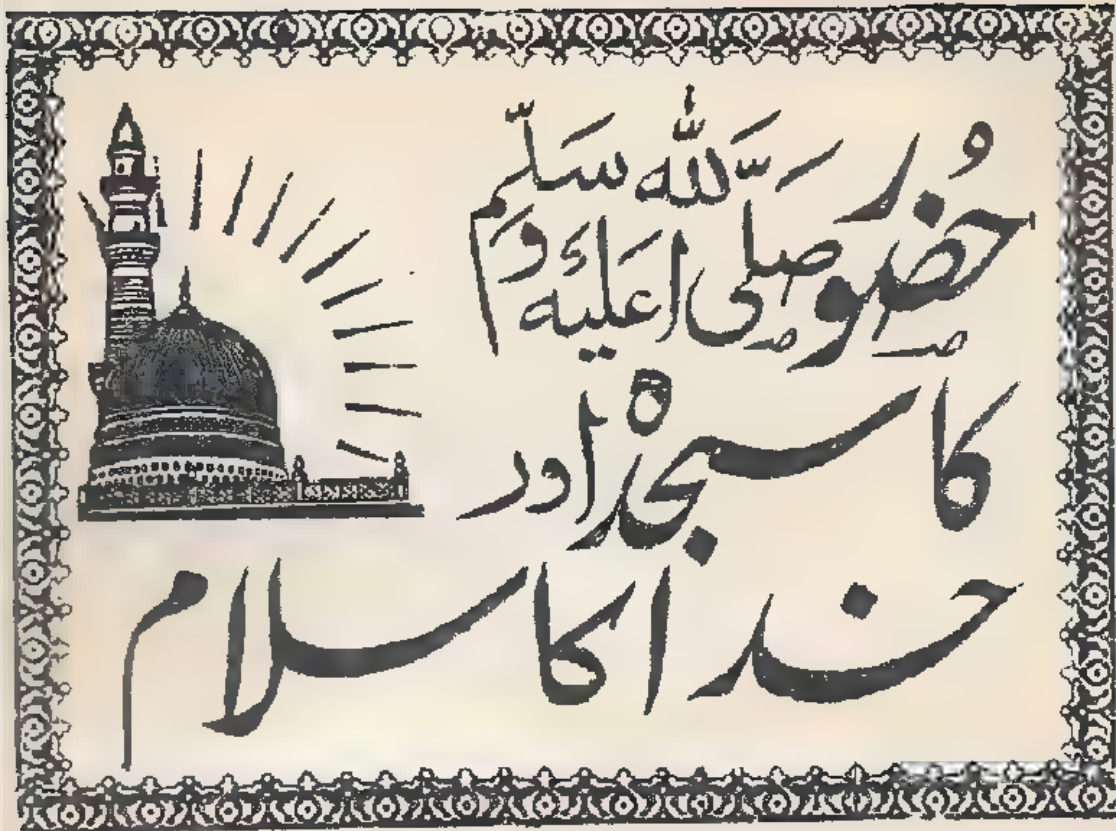 حُضُور صلی اللہ علیہ وسلم
کا سجدہ اور
خدا کا سلام